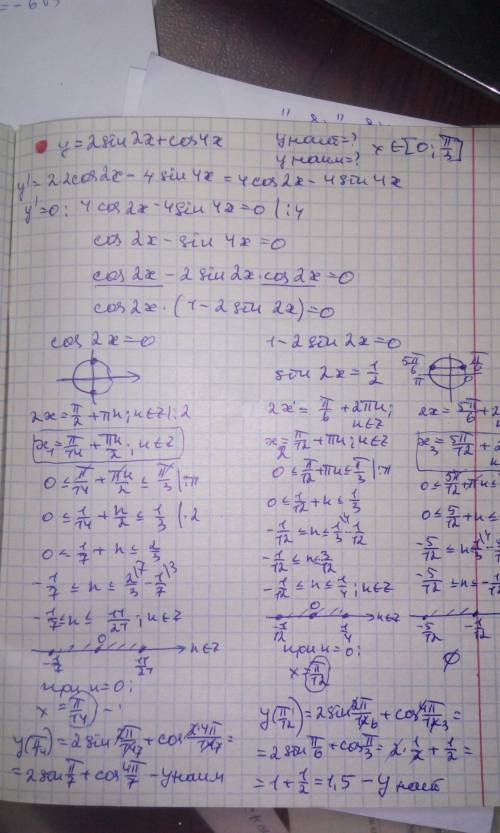 y=2sin2x+cos4x
yнаиб=?
yнаим=?
x∈[0; π/3]
y'=2·2cos2x-4sin4x=4cos2x-4sin4x
y'=0: 4cos2x-4sin4x=0 |:4
cos 2x-sin 4x=0
cos 2x-2sin 2x·cos 2x=0
cos 2x·(1-2sin 2x)=0
cos 2x=0
2x=π/2+πn; n∈Z |:2
x₁=π/14+πn/2; n∈Z
0≤π/14+πn/2≤π/3 |:π
0≤1/14+n/2≤1/3 |·2
0≤1/7+n≤2/3
-1/7≤n≤2/3-1/7
-1/7≤n≤11/21; n∈Z
-1/7 0 11/21 n∈Z
при n=0:
x=π/14
y(π/14)=2sin 2π/14+cos 4π/14=
=2sin π/7+cos 4π/7 - yнаим
1-2sin 2x=0
sin 2x=1/2
5π/6 π/6
π 0
2x=π/6+2πn;
n∈Z
x₂=π/12+πn; n∈Z
0≤π/12+πn≤π/3 |:π
0≤1/12+n≤1/3
-1/12≤n≤1/3-1/12
-1/12≤n≤3/12
-1/12≤n≤1/4; n∈Z
-1/12 0 1/4 n∈Z
при n=0:
x=π/12
y(π/12)=2sin 2π/12+cos 4π/12=
=2sin π/6+cos π/3=2·1/2+1/2=
=1+1/2=1,5 - yнаиб
2x=5π/6+2
x₃=5π/12+
0≤5π/12+πn≤
0≤5/12+n≤
-5/12≤n≤1/3-
-5/12≤n≤-1
-5/12 -1/12
∅